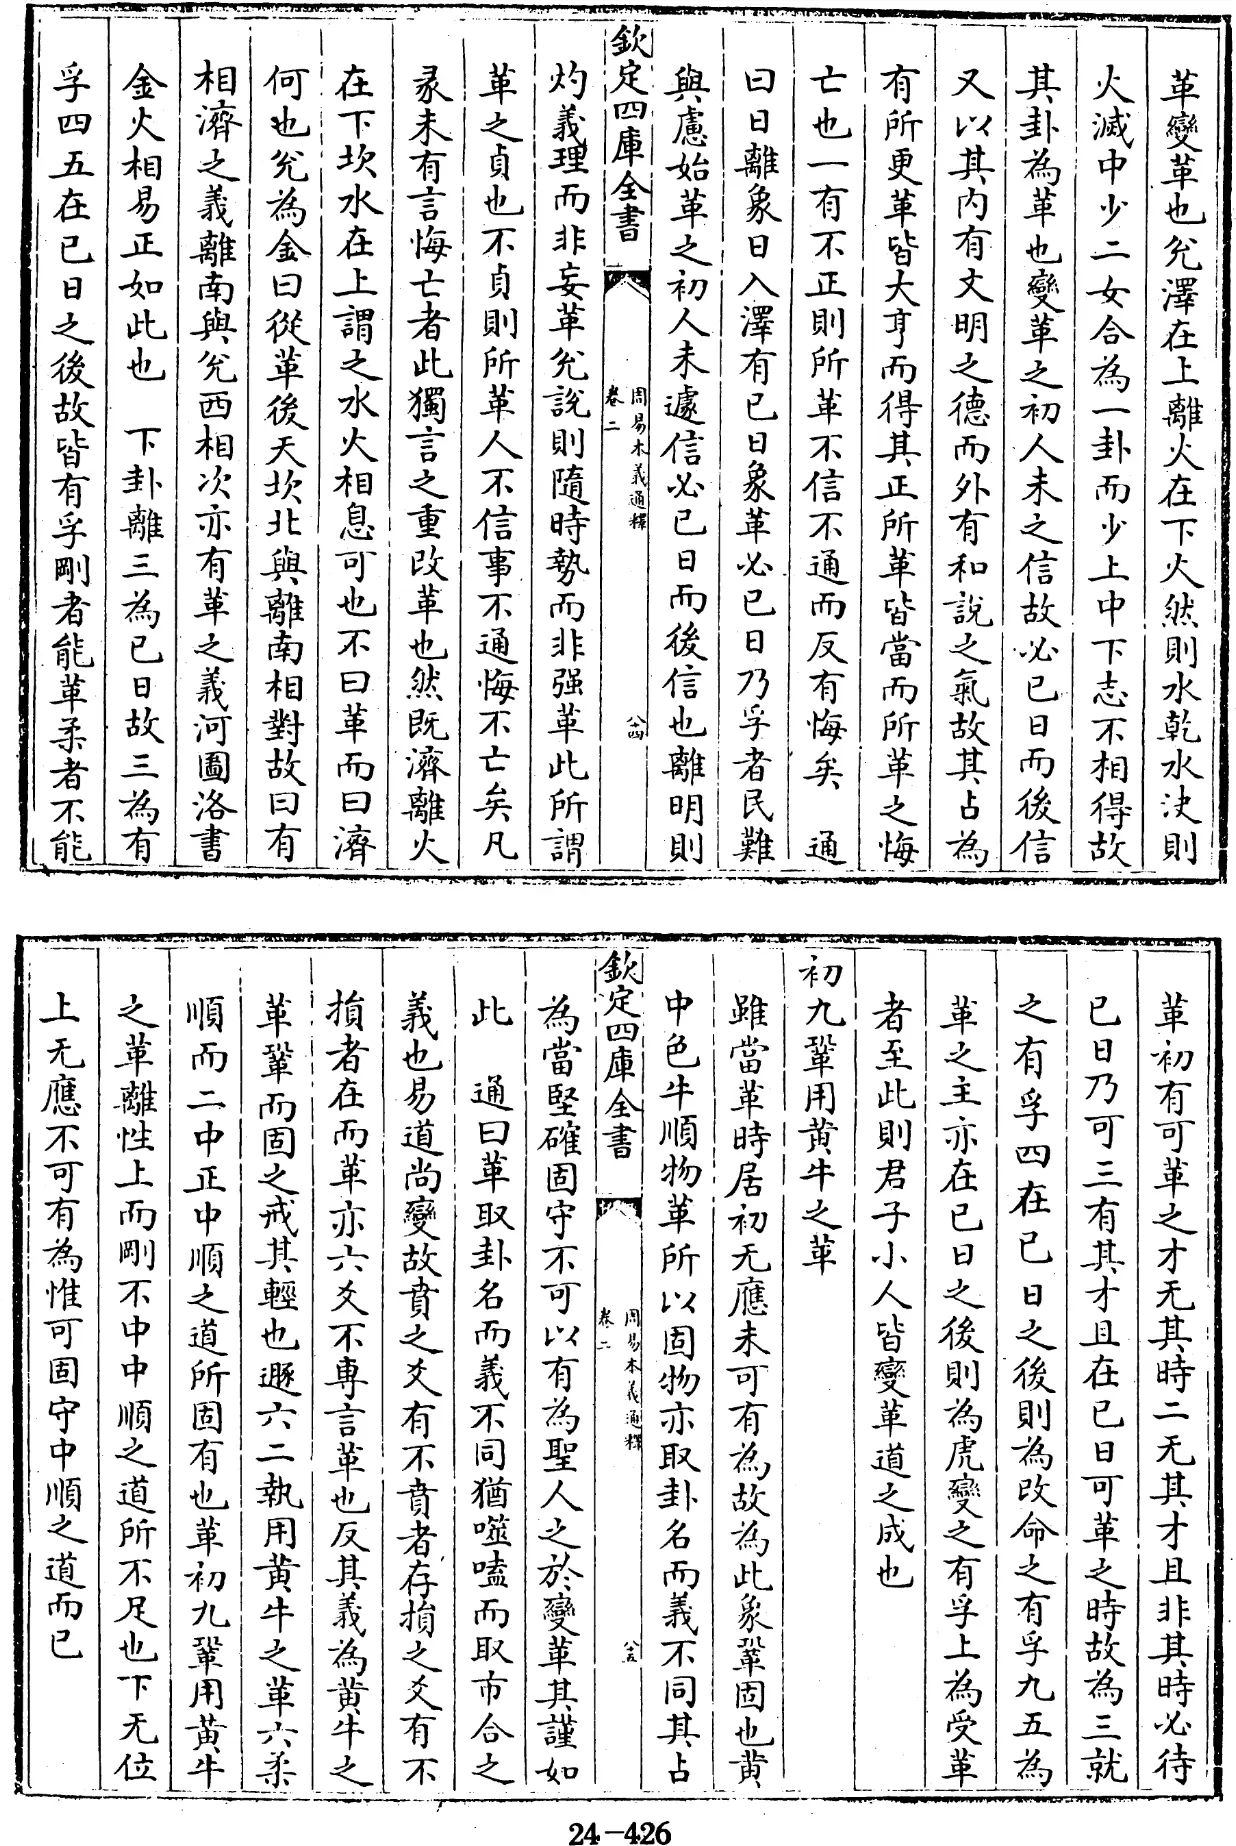 革變革也兊澤在上離火在下火然則水乾水决則
火滅中少二女合為一卦而少上中下志不相得故
其卦為革也變革之初人未之信故必已日而後信
又以其内有文明之德而外有和說之氣故其占為
有所更革皆大亨而得其正所革皆當而所革之悔
亡也一有不正則所革不信不通而反有悔矣　通
曰日離象日入澤有已日象革必已日乃孚者民難
與慮始革之初人未遽信必已日而後信也離明則
欽定四庫全書
周易本義通釋
卷二
八十四
灼義理而非妄革兊說則隨時勢而非强革此所謂
革之貞也不貞則所革人不信事不通悔不亡矣凡
彖未有言悔亡者此獨言之重改革也然既濟離火
在下坎水在上謂之水火相息可也不曰革而曰濟
何也兊為金曰從革後天坎北與離南相對故曰有
相濟之義離南與兊西相次亦有革之義河圖洛書
金火相易正如此也　下卦離三為已日故三為有
孚四五在已日之後故皆有孚剛者能革柔者不能
革初有可革之才无其時二无其才且非其時必待
已日乃可三有其才且在已日可革之時故為三就
之有孚四在已日之後則為改命之有孚九五為
革之主亦在已日之後則為虎變之有孚上為受革
者至此則君子小人皆變革道之成也
初九鞏用黄牛之革
雖當革時居初无應未可有為故為此象鞏固也黄
中色牛順物革所以固物亦取卦名而義不同其占
欽定四庫全書
周易本義通釋
卷二
八十五
為當堅確固守不可以有為聖人之於變革其謹如
此　通曰革取卦名而義不同猶噬嗑而取市合之
義也易道尚變故賁之爻有不賁者存損之爻有不
損者在而革亦六爻不專言革也反其義為黄牛之
革鞏而固之戒其輕也遯六二執用黄牛之革六柔
順而二中正中順之道所固有也革初九鞏用黄牛
之革離性上而剛不中中順之道所不足也下无位
上无應不可有為惟可固守中順之道而已
24-426